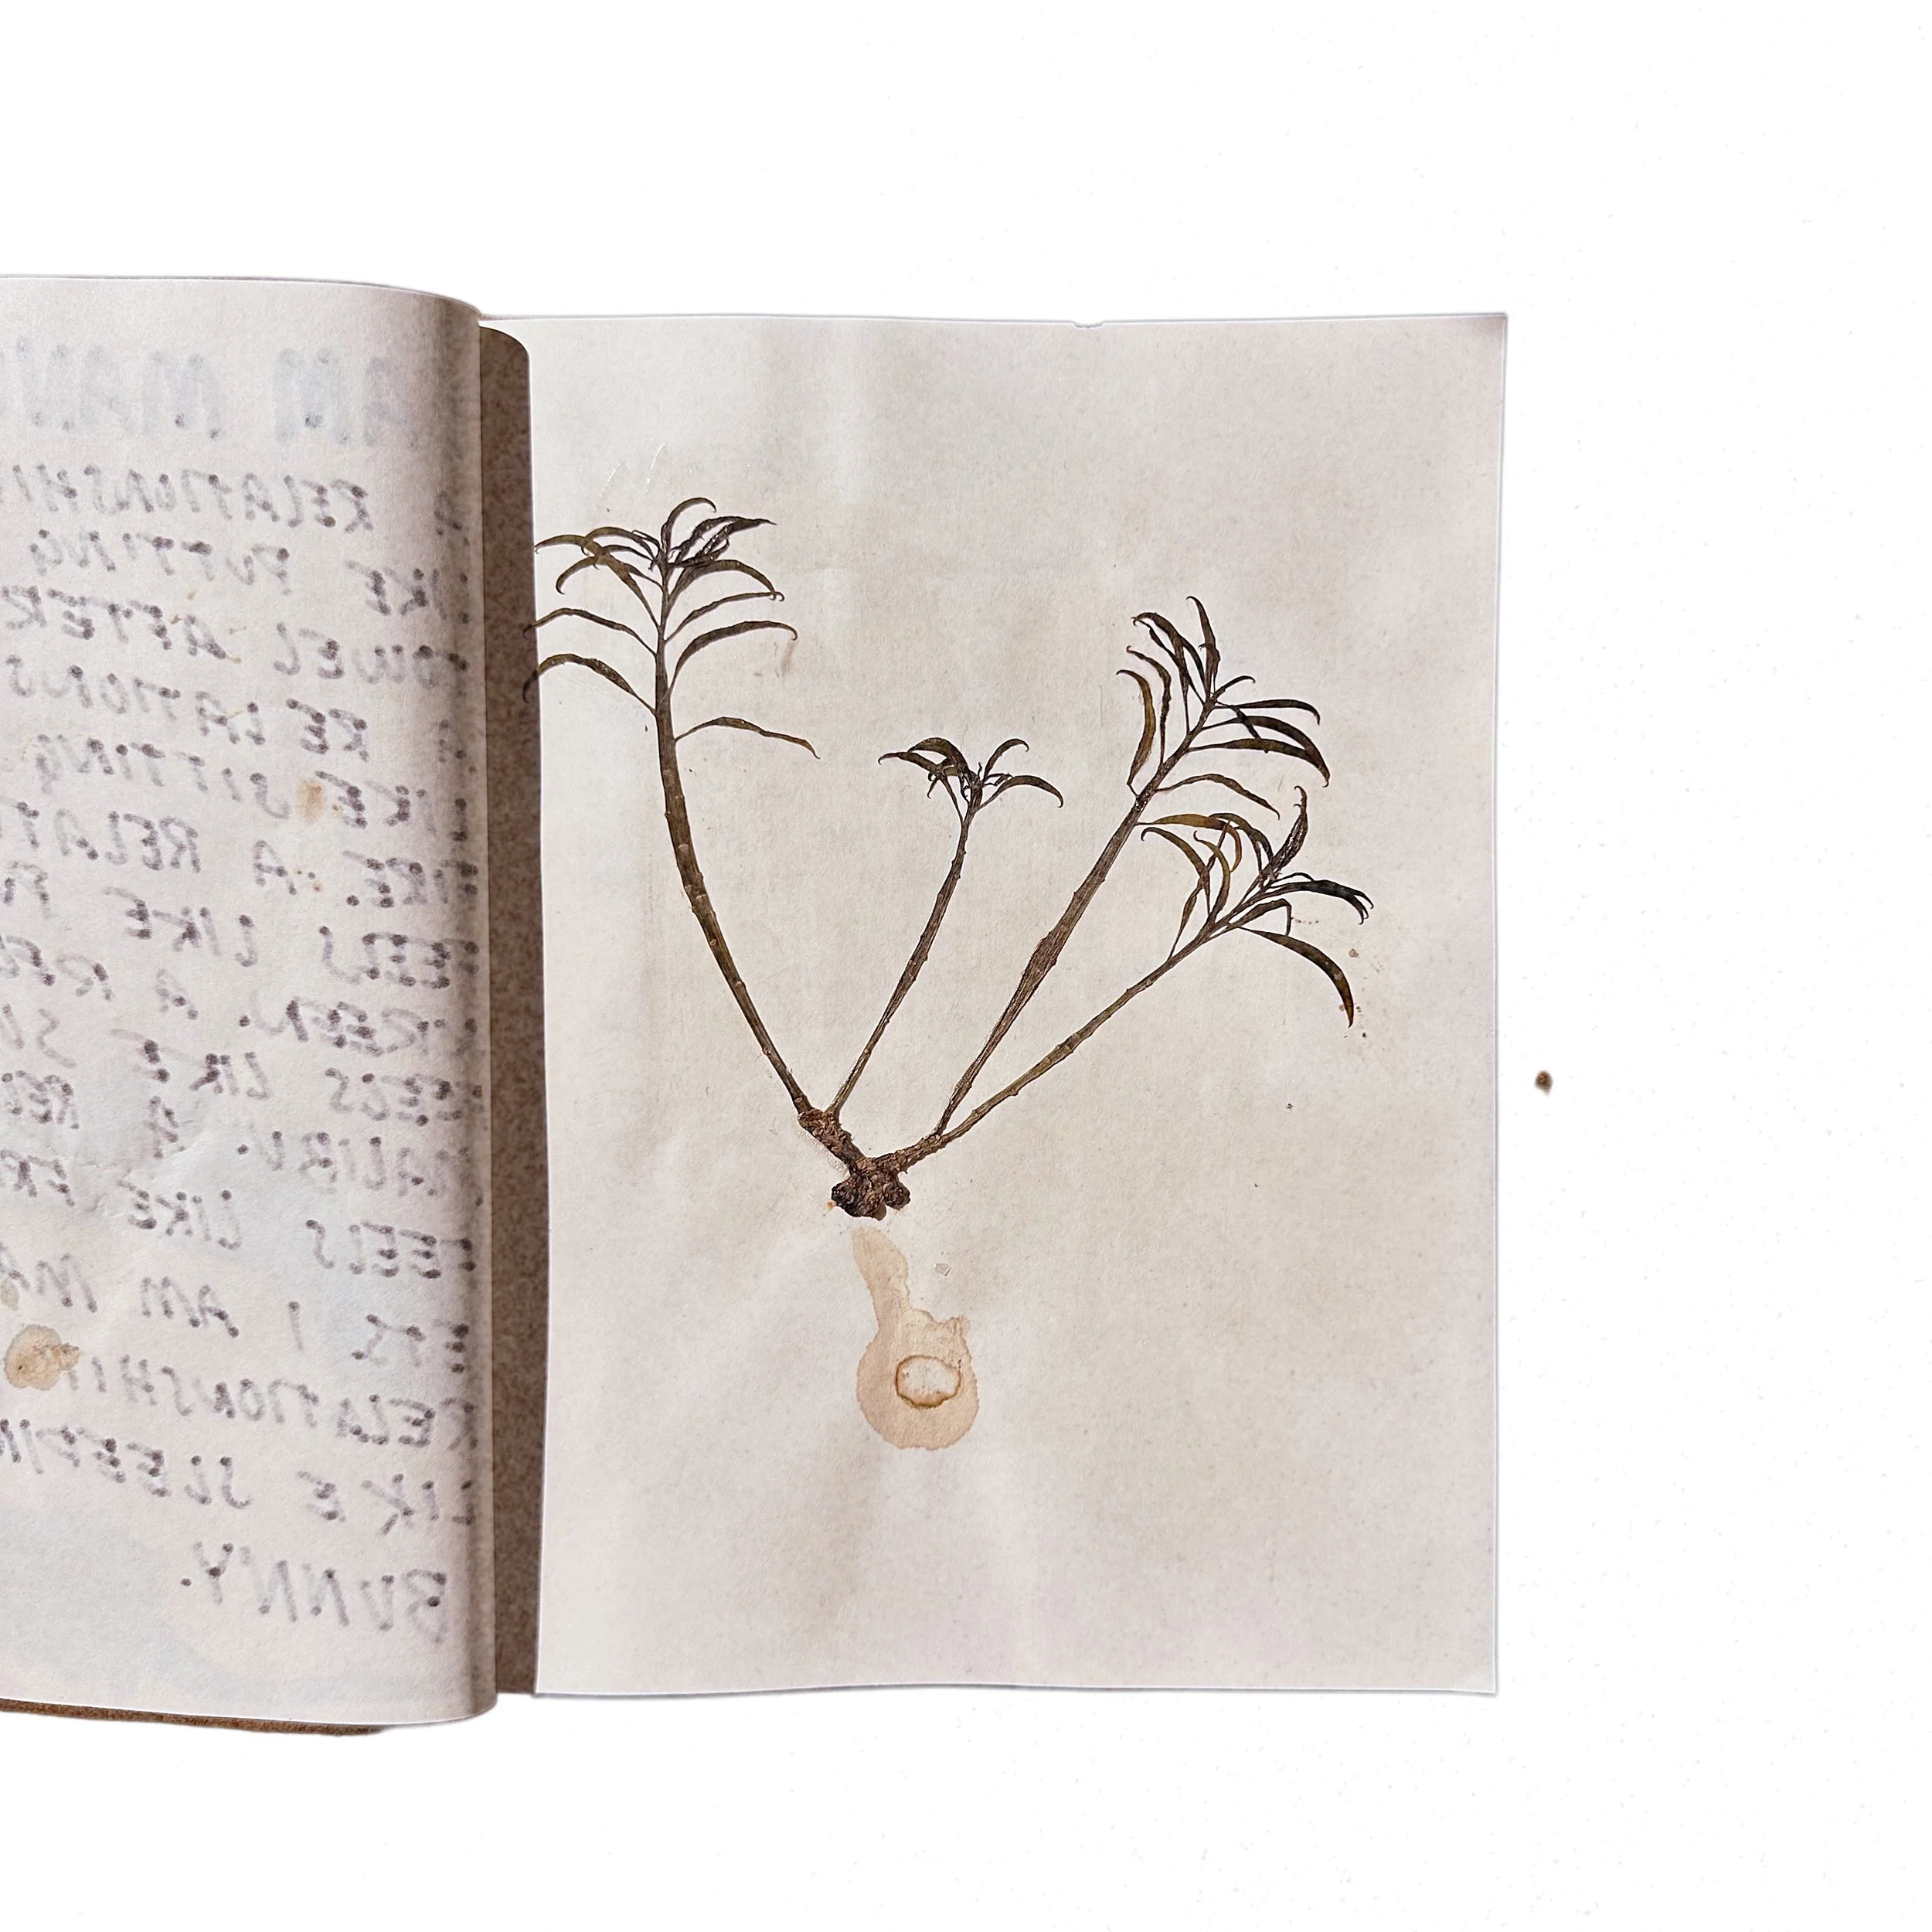 AM MAN
A RELATIONSHI
LIKE PUTTING
TOWEL AFTER
A RELATIONS
LIKE SITTING
FIRE. A RELAT
FEELS LIKE
SCREEN. A RE
FEELS LIKE SU
MALIBU. A REL
FEELS LIKE FR
I AM MA
RELATIONSHI
LIKE SLEEPIN
BUNNY.